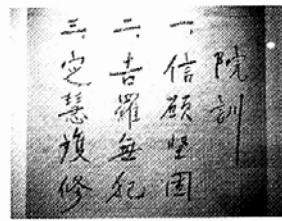 院訓
一、信願堅固
二、吉羅無犯
三、定慧獲修